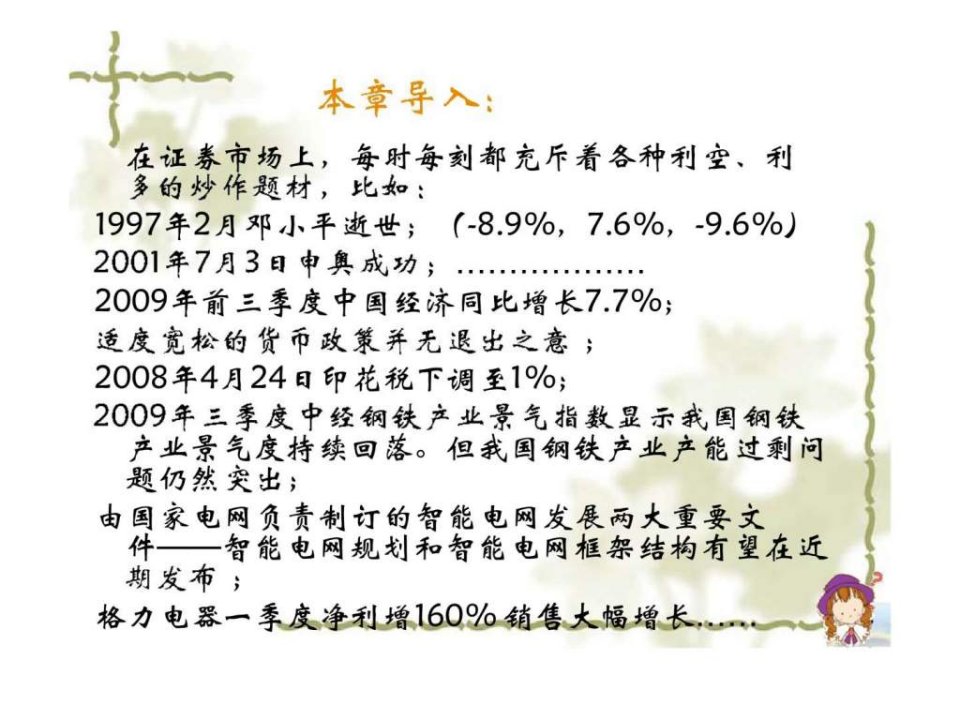 本章导入：
在证券市场上，每时每刻都充斥着各种利空、利
多的炒作题材，比如：
1997年2月邓小平逝世；（-8.9%，7.6%，-9.6%）
2001年7月3日申奥成功；………………
2009年前三季度中国经济同比增长7.7%；
适度宽松的货币政策并无退出之意；
2008年4月24日印花税下调至1%；
2009年三季度中经钢铁产业景气指数显示我国钢铁
产业景气度持续回落。但我国钢铁产业产能过剩问
题仍然突出；
由国家电网负责制订的智能电网发展两大重要文
件——智能电网规划和智能电网框架结构有望在近
期发布；
格力电器一季度净利增160% 销售大幅增长……